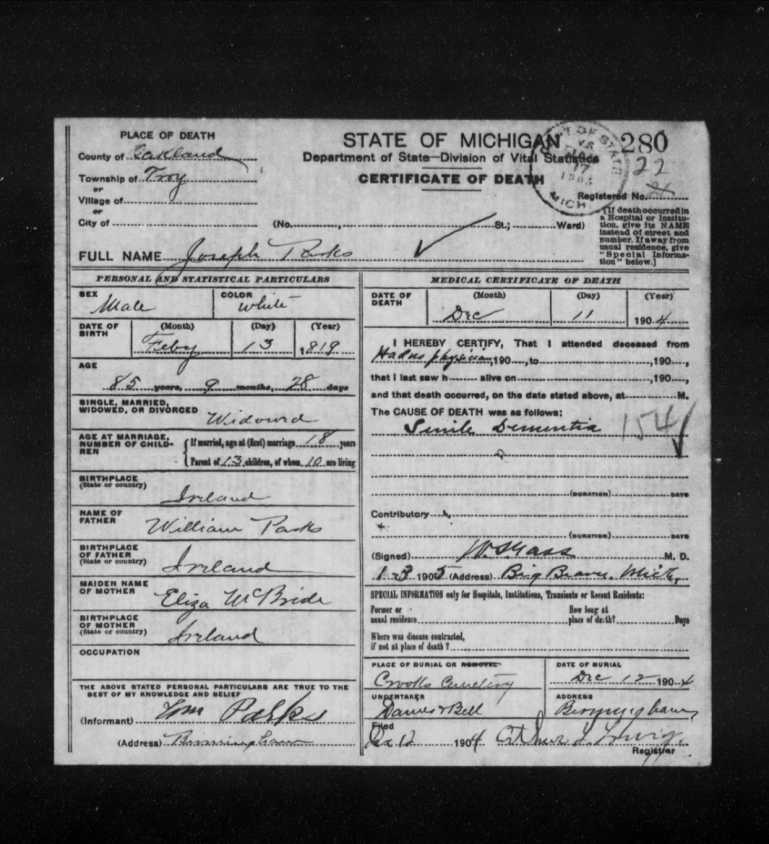 PLACE OF DEATH
County of Oakland
Township of Troy
or
Village of
or
City of
STATE OF MICHIGAN
Department of State—Division of Vital Statistics
CERTIFICATE OF DEATH
280
22
Registered No. 21
(No. St.; Ward)
(If death occurred in a Hospital or Institution, give its NAME instead of street and number. If away from usual residence, give "Special Information" below.)
FULL NAME Joseph Parks
PERSONAL AND STATISTICAL PARTICULARS
SEX
Male
COLOR
White
DATE OF BIRTH
(Month) (Day) (Year)
Feby 13 1819
AGE
85 years, 9 months, 28 days
SINGLE, MARRIED, WIDOWED, OR DIVORCED
Widowd
AGE AT MARRIAGE, NUMBER OF CHILDREN
If married, age at (first) marriage 18 years
Parent of 13 children, of whom 10 are living
BIRTHPLACE
(State or country)
Ireland
NAME OF FATHER
William Parks
BIRTHPLACE OF FATHER
(State or country)
Ireland
MAIDEN NAME OF MOTHER
Eliza McBride
BIRTHPLACE OF MOTHER
(State or country)
Ireland
OCCUPATION
THE ABOVE STATED PERSONAL PARTICULARS ARE TRUE TO THE
BEST OF MY KNOWLEDGE AND BELIEF
(Informant) Wm Parks
(Address) Birmingham
MEDICAL CERTIFICATE OF DEATH
DATE OF DEATH
(Month) (Day) (Year)
Dec 11 1904
I HEREBY CERTIFY, That I attended deceased from
Had no physician, 190 , to , 190 ,
that I last saw h alive on , 190 ,
and that death occurred, on the date stated above, at M.
The CAUSE OF DEATH was as follows:
Senile Dementia 154
(DURATION) DAYS
Contributory
(DURATION) DAYS
(Signed) M. D.
1-3 1905 (Address) Big Beaver, Mich,
SPECIAL INFORMATION only for Hospitals, Institutions, Transients or Recent Residents:
Former or usual residence
How long at place of death? Days
Where was disease contracted, if not at place of death?
PLACE OF BURIAL OR REMOVAL
Crooks Cemetery
DATE OF BURIAL
Dec 12 1904
UNDERTAKER
Daines & Bell
ADDRESS
Birmingham
Filed
Dec 12 1904
Registrar